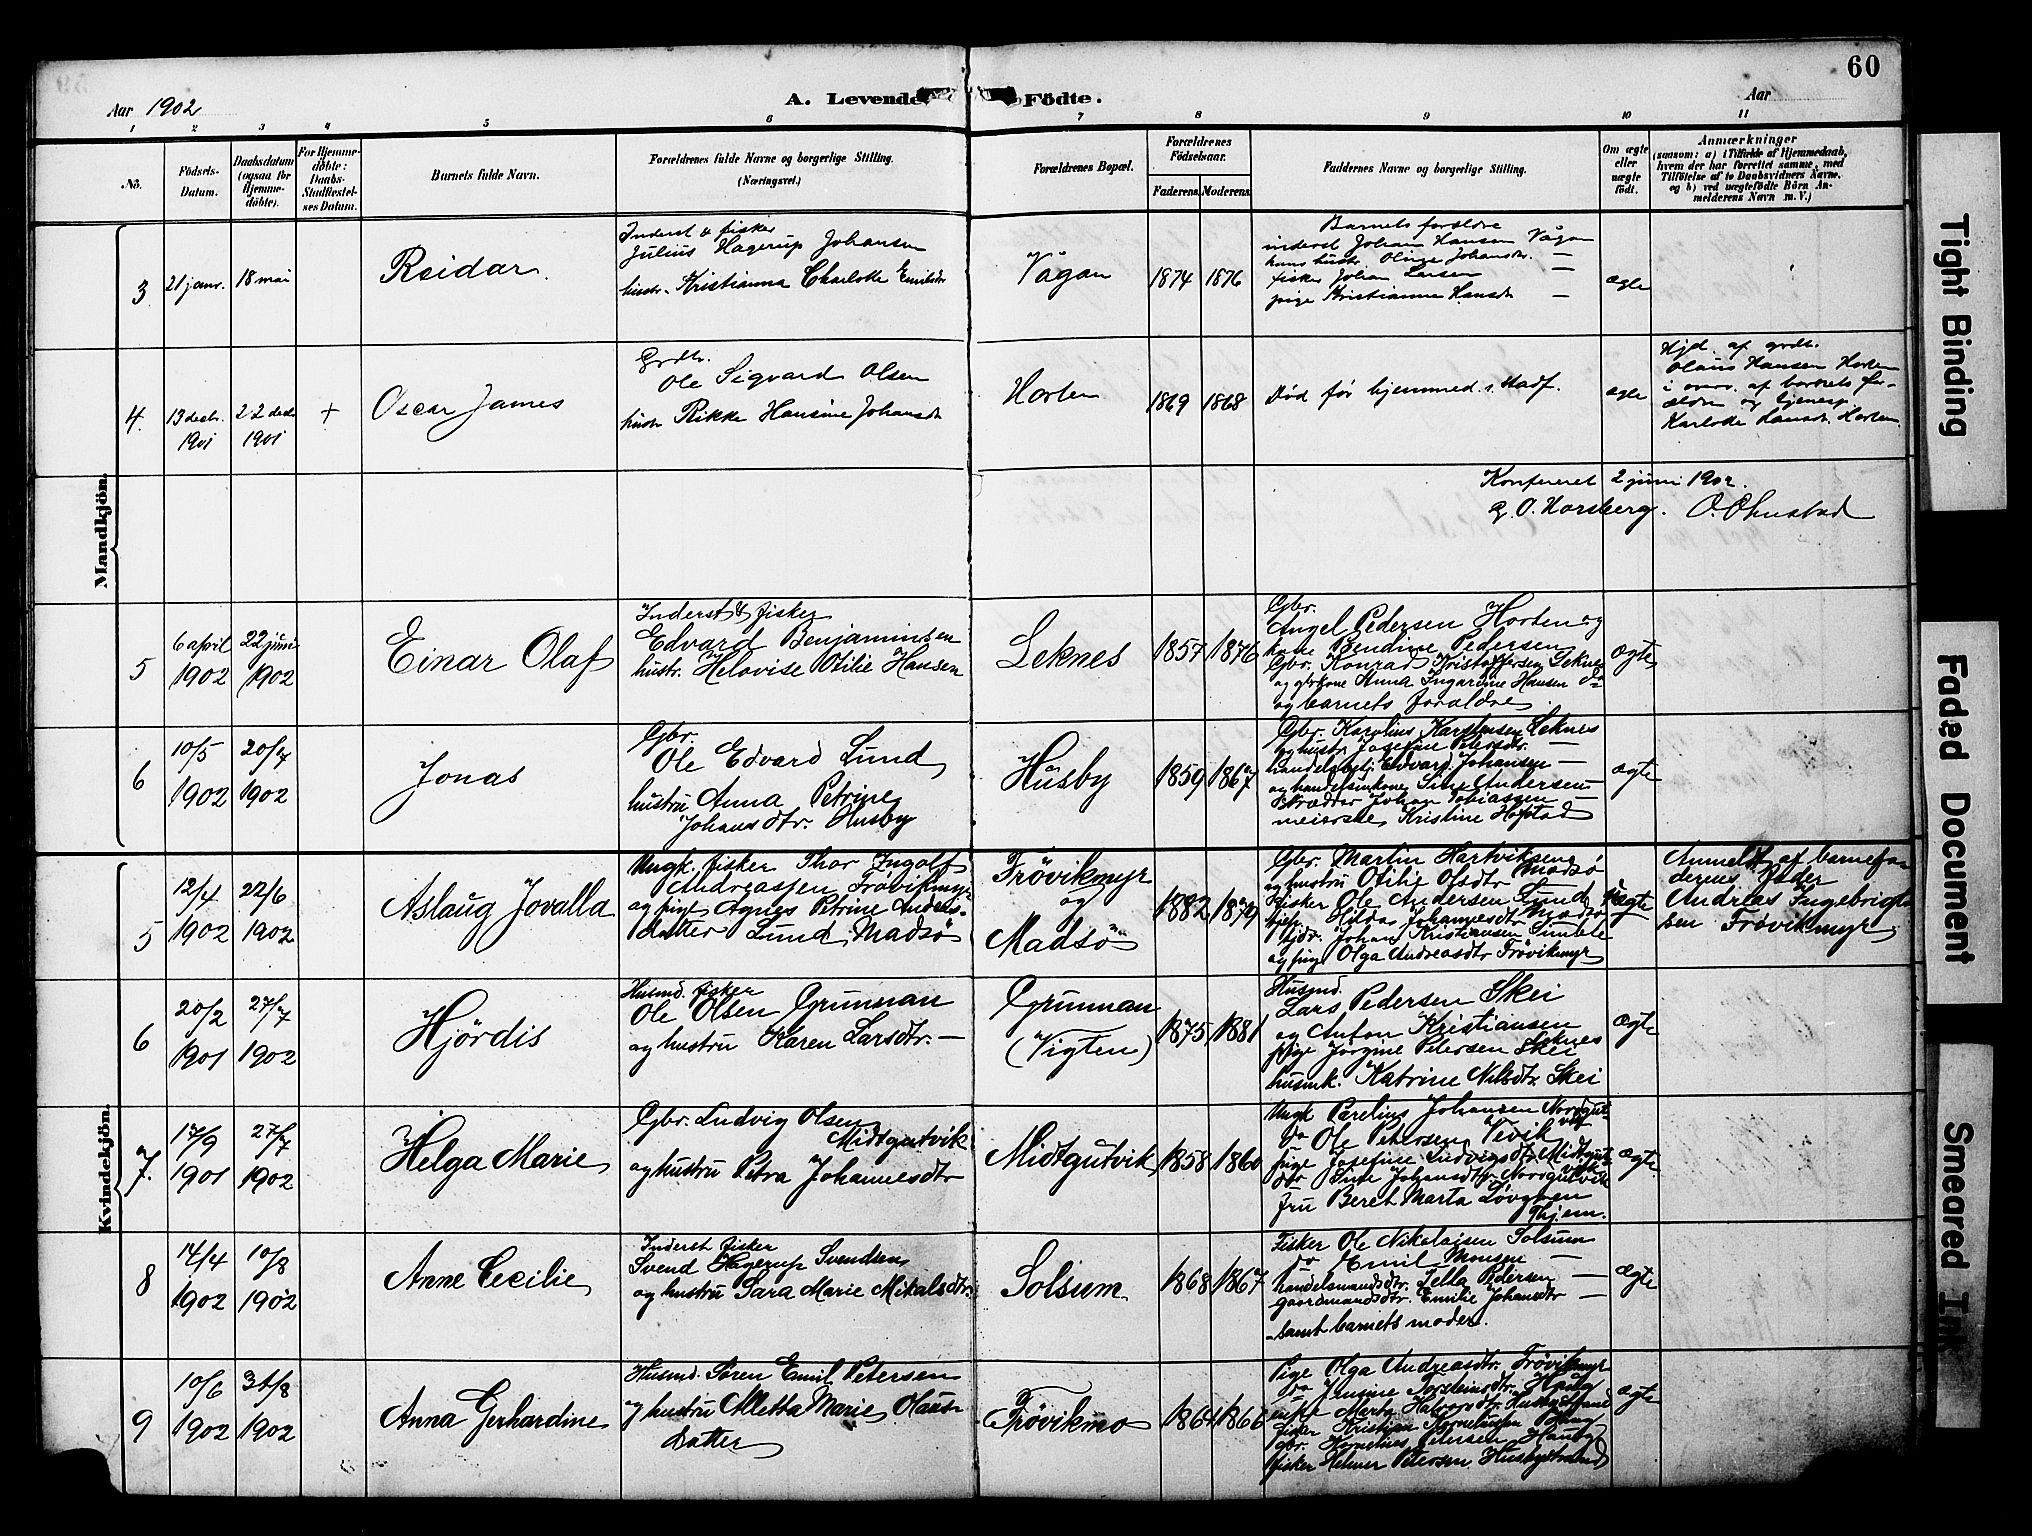 60
Aar 1902
A. Levende Födte.
Aar
1 2 3 4 5 6 7 8 9 10 11
No.
Födsels-
Datum.
Daabsdatum
(ogsaa for
Hjemme-
döbte).
For Hjemme-
döbte:
Daabs-
Stadfæstel-
ses Datum.
Barnets fulde Navn.
Forældrenes fulde Navne og borgerlige Stilling.
(Næringsvei.)
Forældrenes Bopæl.
Forældrenes
Födselsaar.
Faderens. Moderens.
Faddernes Navne og borgerlige Stilling.
Om ægte
eller
uægte
födt.
Anmærkninger
(saasom: a) i Tilfælde af Hjemmedaab,
hvem der har forrettet samme, med
Tilföielse af to Daabsvidners Navne,
og b) ved uægtefödte Börn An-
melderens Navn m. V.)
Mandkjön.
3
21 janr.
18 mai
Reidar
Inderst & fisker
Julius Hagerup Johansen
hustr. Kristianna Charlotte
Vågan
1874
1876
Barnets forældre
inderst Johan Hansen Vågan
hans hustr. Oline Johansdr. —
fisker Johan Larsen —
pige Kristianna Hansdr —
ægte
4.
13 decbr.
1901
22 decbr
1901
+
Oscar James
Grdb.
Ole Sigvard Olsen
hustr Rikke Hansine Johansdr
Horten
1869
1868
Död før hjemmed. s. stadf.
ægte
Hjd. af grdb.
Olaus Hansen Horten
i overv. af barnets for-
ældre og tjenesp.
Karlotte Hansdr. Horten
Konfereret 2 juni 1902.
O. Horsberg. O. Ohnstad
5
6 april
1902
22 juni
1902
Einar Olaf
Inderst & fisker
Edvard Benjaminsen
hustr. Helovise Otilie Hansen
Leknes
1857
1876
Gbr.
Angel Pedersen Horten og
kone Bendine Pedersen
Gbr. Konrad Kristoffersen Leknes
og gbrkone Anna Ingardine Hansen do
og barnets forældre
ægte
6
10/5
1902
20/7
1902
Jonas
Gbr.
Ole Edvard Lund
hustru Anna Petrine
Johansdtr. Husby
Husby
1859
1867
Gbr. Karolius Karstensen Leknes
og hustr Josefine Petersdtr. —
handelsbetj. Edvard Johansen —
og handelsmkone Sine Andersen —
Skrædder Johan Tobiassen —
meierske Kristine Hofstad
ægte
Kvindekjön.
5
12/4
1902
22/6
1902
Aslaug Jovalla
Ungk. fisker Thor Ingolf
Andreassen Frövikmyr
og pige Agnes Petrine Anders-
datter Lund, Madsö
Frövikmyr
og
Madsö
1882
1879
Gbr. Martin Hartviksen
og hustru Otilie Olsdtr Madsö
Fisker Ole Andersen Lund
Hilda Johannesdtr Madsö
Johan Kristiansen
og pige Olga Andreasdtr Frövikmyr
uægte
Anmeldt af barnefa-
derens fader
Andreas Ingebrigt-
sen Frövikmyr.
6
20/2
1901
27/7
1902
Hjördis
Husmd. fisker
Ole Olsen Grunnan
og hustru Karen Larsdtr. —
Grunnan
(Vigten)
1875
1881
Husmd.
Lars Pedersen Skei
og Anton Kristiansen
Leknes
pige Jörgine Petersen Skei
husmk. Katrine Nilsdtr. Skei
ægte
7.
17/9
1901
27/7
1902
Helga Marie
Gbr. Ludvig Olsen
Midtgutvik
og hustru Petra Johannesdtr
Midtgutvik
1858
1860
Ungk Parelius Johansen Nordgut-
vik
do Ole Petersen Tevik
pige Josefine Ludvigsdtr Midtgut-
vik
do Johansdtr Nordgutvik
Fru Beret Marta Lövgren
Thjem.
ægte
8
14/4
1902
10/8
1902
Anne Cecilie
Inderst fisker
Svend Hagerup Svendsen
og hustru Sara Marie Mikalsdtr.
Solsum
1868
1867
Fisker Ole Nikolaisen Solsum
do Emil Monsen —
handelsmandsdtr. Jella Pedersen —
gaardmandsdtr. Emilie Johansdtr —
samt barnets moder.
ægte
9
10/6
1902
31/8
1902
Anna Gerhardine
Husmd. Sören Emil Petersen
og hustru Alletta Marie Olaus-
datter
Frövikmo
1864
1866
Pige Olga Andreasdtr. Frövikmyr
do Jensine Torsteinsdtr. Haug
enke Merta Halvorsdtr. Husbystrand
fisker Kristian Kornelius­sen Haug
gbr. Kornelius Petersen Haug
fisker Helmer Petersen Husbystrand
ægte
Tight Binding
Faded Document
Smeared Ink